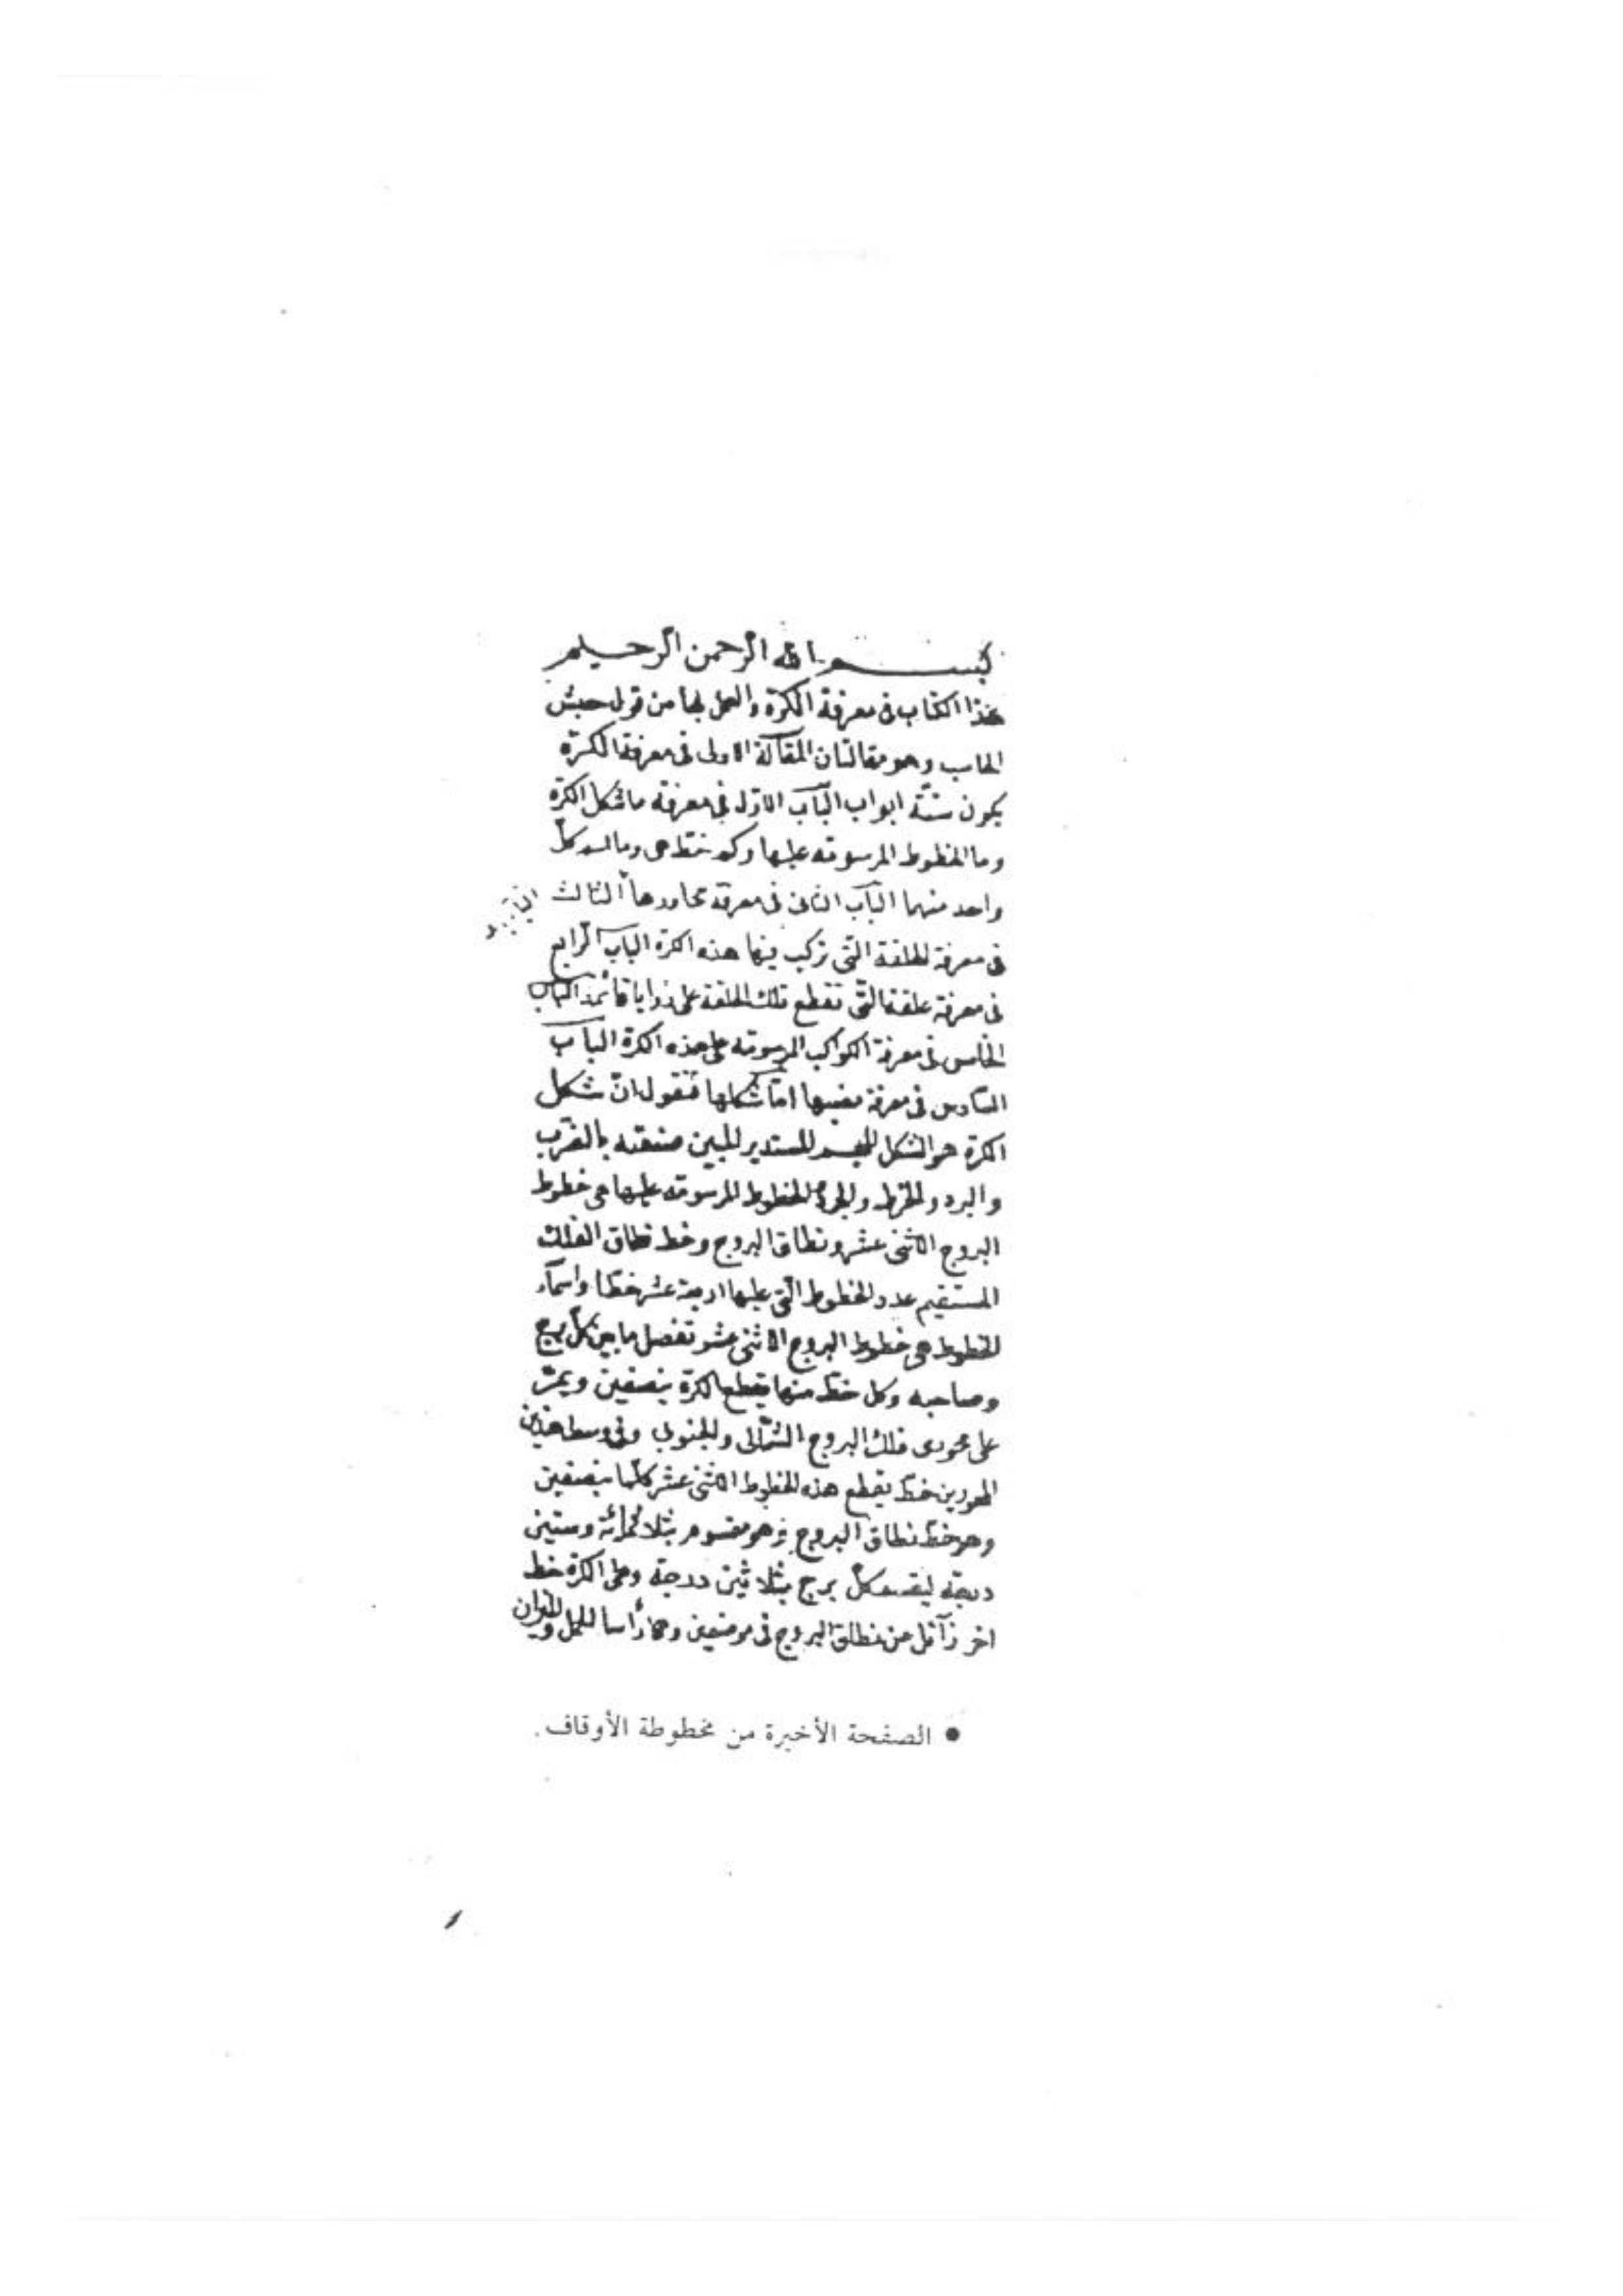 بسم الله الرحمن الرحيم
هذا الكتاب في معرفة الكرة والعمل بها من قول حبش
الحاسب وهو مقالتان المقالة الاولى في معرفة الكرة
يكون ستة ابواب الباب الاول في معرفة ما شكل الكرة
وما الخطوط المرسومه عليها وكم خط هي وما اسم كل
واحد منهما الباب الثانى في معرفة محاورها الثالث
في معرفة الحلقة التى تركب فيها هذه الكرة الباب الرابع
في معرفة علقة التى تقطع تلك الحلقة على زوايا قائمة الباب
الخامس في معرفة الكواكب المرسومه على هذه الكرة الباب
السادس في معرفة اما شكلها فنقول ان شكل
الكرة هو الشكل المجسم المستدير صنعته بالضرب
والبرد والخرط الخطوط المرسومه عليها هي خطوط
البروج الاثنى عشر ونطاق البروج وخط نطاق الفلك
المستقيم عدد الخطوط التى عليها اربعة عشر خطا واسماء
الخطوط هي خطوط البروج الاثنى عشر تفصل ما بين كل برج
وصاحبه وكل خط منها يقطع الكرة بنصفين ويمر
على محورى فلك البروج الشمالى والجنوبى وفي وسط هذين
المحورين خط يقطع هذه الخطوط الاثنى عشر كلها بنصفين
وهو خط نطاق البروج وهو مقسوم بثلاثمائة وستين
درجة ليقسم كل برج بثلاثين درجة وعلى الكرة خط
اخر زائل عن نطاق البروج في موضعين وهما رأسا الحمل والميزان
● الصفحة الأخيرة من مخطوطة الأوقاف .